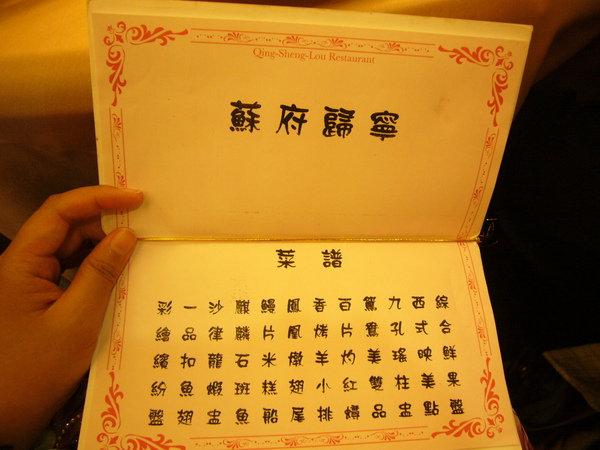 Qing-Sheng-Lou Restaurant
蘇府歸寧
菜譜
彩繪繽紛盤
一品扣魚翅
沙律龍蝦盅
麒麟石斑魚
鰻片米糕船
鳳凰燉翅尾
香烤羊小排
百片灼紅蟳
鴛鴦美雙品
九孔瑤柱盅
西式映美點
綜合鮮果盤